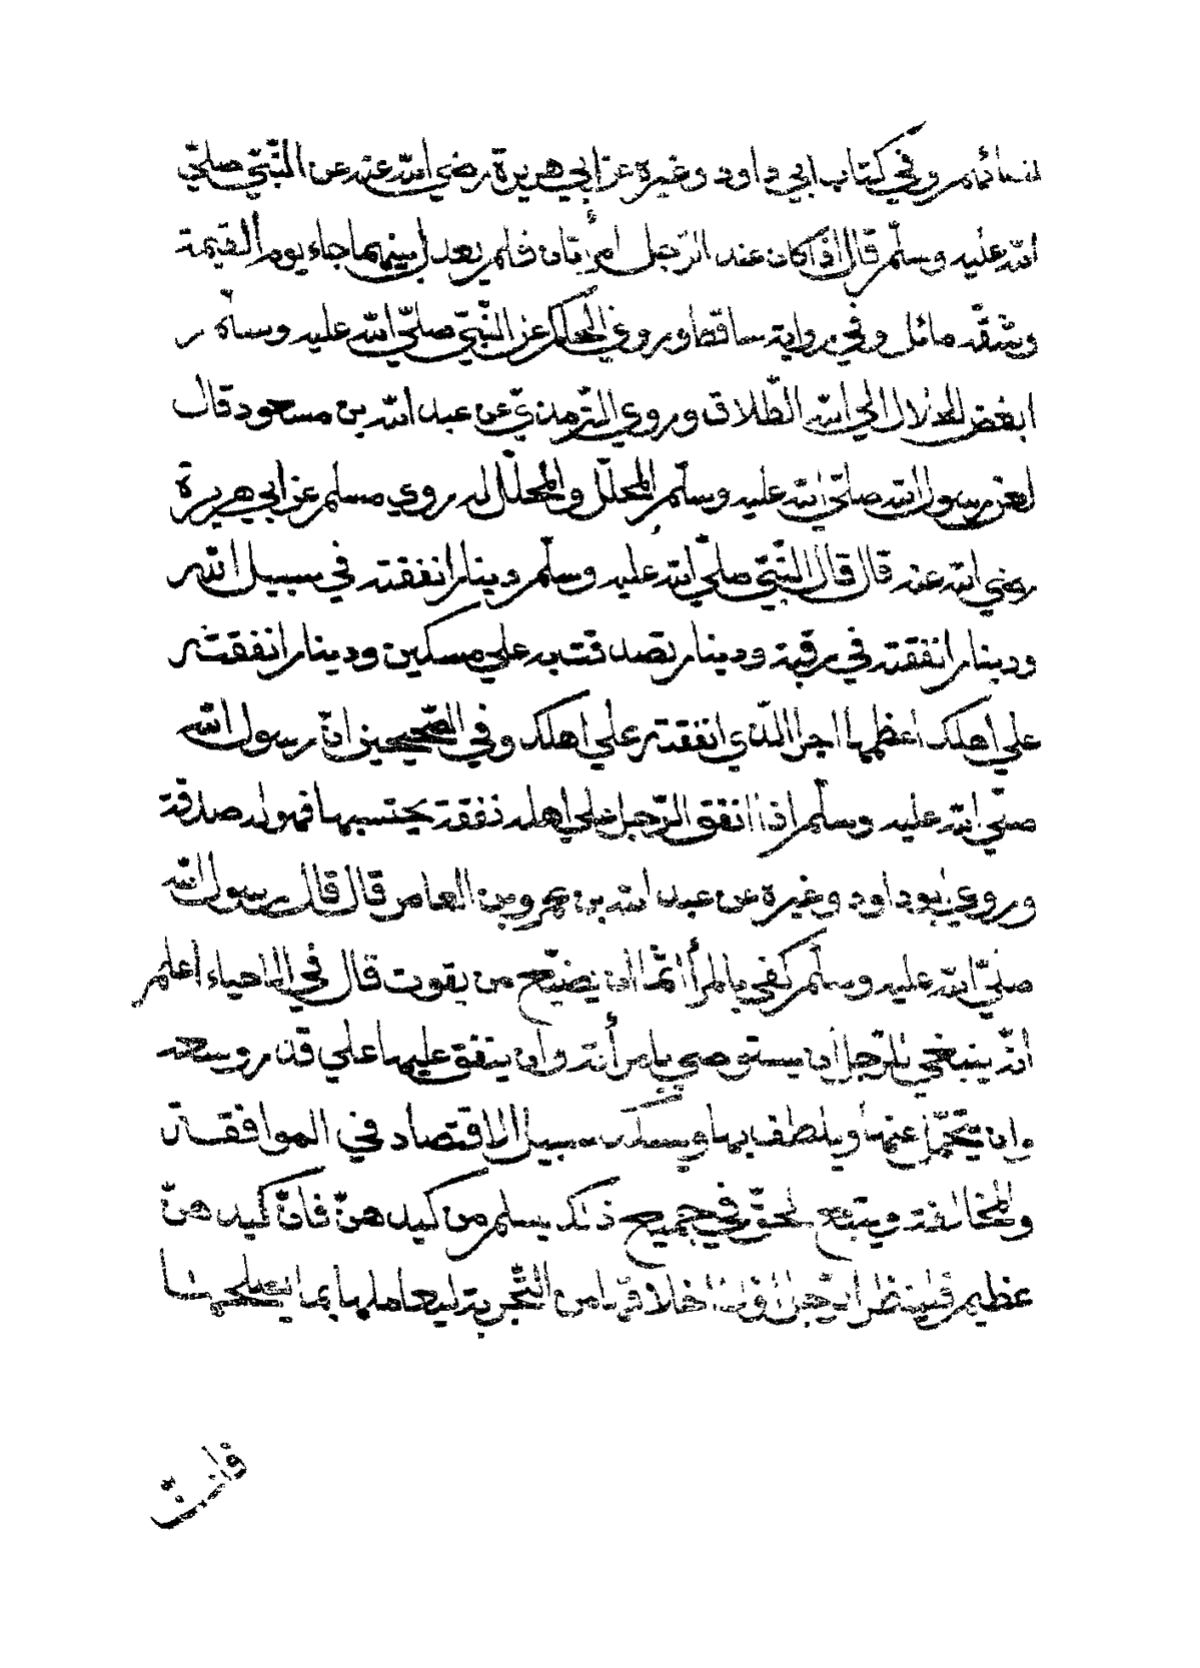 لنسائهم وفي كتاب ابي داود وغيره عن ابي هريرة رضي الله عنه عن النّبيّ صلّي
الله عليه وسلّم قال اذا كان عند الرّجل امرأتان فلم يعدل بينهما جاء يوم القيمة
وشقّه مائل وفي رواية ساقط وروي الحاكم عن النّبيّ صلّي الله عليه وسلّم
ابغض الحلال الي الله الطّلاق وروي التّرمذيّ عن عبد الله بن مسعود قال
لعن رسول الله صلّي الله عليه وسلّم المحلّل والمحلّل له روي مسلم عن ابي هريرة
رضي الله عنه قال قال النّبيّ صلّي الله عليه وسلّم دينار انفقته في سبيل الله
ودينار انفقته في رقبة ودينار تصدقت به علي مسكين ودينار انفقته
علي اهلك اعظمها اجرا الّذي انفقته علي اهلك وفي الصّحيحين انّ رسول الله
صلّي الله عليه وسلّم اذا انفق الرّجل علي اهله نفقة يحتسبها فهو له صدقة
وروي ابو داود وغيره عن عبد الله بن عمرو بن العاص قال قال رسول الله
صلّي الله عليه وسلّم كفي بالمرأ اثما ان يضيّع من يقوت قال في الاحياء اعلم
انّه ينبغي للرّجل ان يستوصي بامرأته وان ينفق عليها علي قدر وسعه
وان يتحمّل عنها ويلطف بها ويسلك سبيل الاقتصاد في الموافقة
والمخالفة ويتبع الحقّ في جميع ذلك يسلم من كيدهنّ فانّ كيدهنّ
عظيم فلينظر الرّجل اوّلا اخلاقها من التّجربة ليعاملها بما يصلحها
فان